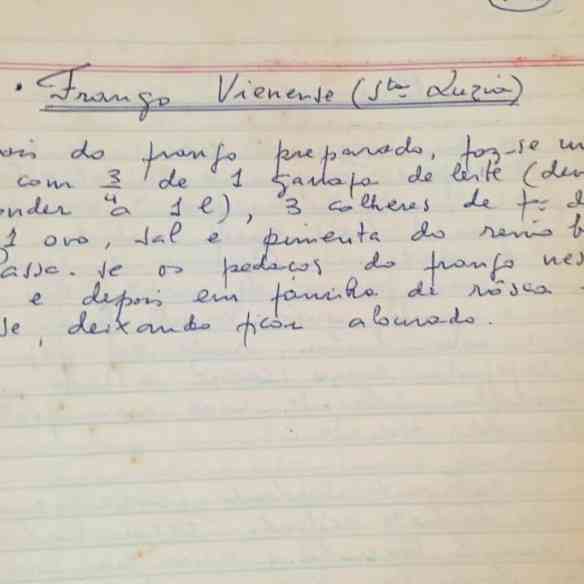 . Frango Vienense (Sta Luzia)
ois do frango preparado, faz-se um
com 3/4 de 1 garrafa de leite (dev
onder a 1 l), 3 colheres de
1 ovo, sal e pimenta do reino b
assa-se os pedaços do frango nes
e depois em farinha de rôsca
se, deixando ficar alourado.